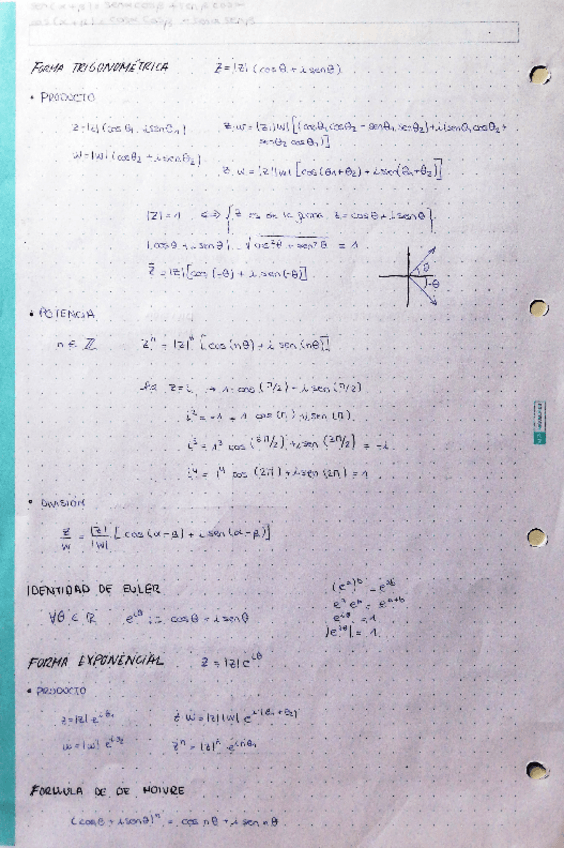 FORMA TRIGONOMÉTRICA z = |z| (cosθ + i senθ)
• PRODUCTO
z = |z| (cosθ₁ + i senθ₁) z·w = |z||w| [(cosθ₁ cosθ₂ - senθ₁ senθ₂) + i(senθ₁ cosθ₂ +
senθ₂ cosθ₁)]
w = |w| (cosθ₂ + i senθ₂)
z·w = |z||w| [cos(θ₁+θ₂) + i sen(θ₁+θ₂)]
|z| = 1 ⟺ z = cosθ + i senθ
|cosθ + i senθ| = √cos²θ + sen²θ = 1
z̄ = |z| [cos(-θ) + i sen(-θ)]
θ
-θ
• POTENCIA
n ∈ ℤ zⁿ = |z|ⁿ [cos(nθ) + i sen(nθ)]
z = i → 1 · cos(π/2) + i sen(π/2)
i² = -1 → 1 cos(π) + i sen(π)
i³ = 1³ cos(3π/2) + i sen(3π/2) = -i
i⁴ = 1⁴ cos(2π) + i sen(2π) = 1
• DIVISIÓN
z/w = |z|/|w| [cos(α-β) + i sen(α-β)]
IDENTIDAD DE EULER
∀θ ∈ ℝ e^{iθ} := cosθ + i senθ
(e^a)^b = e^{ab}
e^a e^b = e^{a+b}
= 1
|e^{iθ}| = 1
FORMA EXPONENCIAL z = |z| e^{iθ}
• PRODUCTO
z = |z| e^{iθ₁} z·w = |z||w| e^{i(θ₁+θ₂)}
w = |w| e^{iθ₂} zⁿ = |z|ⁿ e^{inθ₁}
FORMULA DE DE MOIVRE
(cosθ + i senθ)ⁿ = cos nθ + i sen nθ